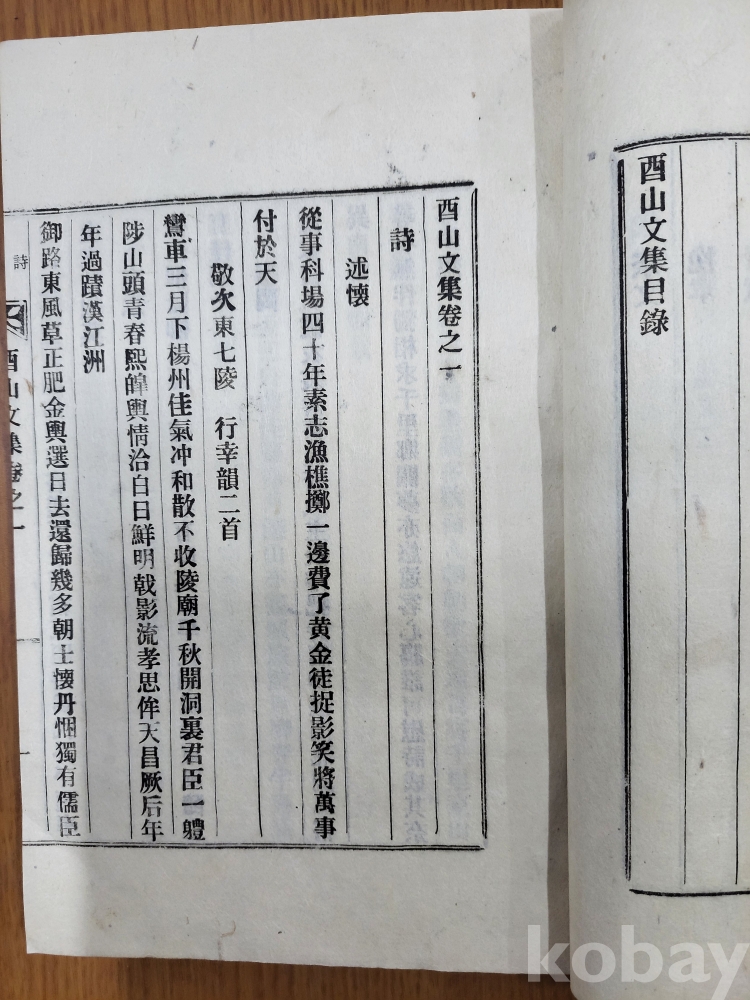 酉山文集目錄
酉山文集卷之一
詩
述懷
從事科場四十年素志漁樵擲一邊費了黄金徒捉影笑將萬事
付於天
敬次東七陵 行幸韻二首
鸞車三月下楊州佳氣冲和散不收陵廟千秋開洞裏君臣一軆
陟山頭青春熙皥輿情洽白日鮮明戟影流孝思侔天昌厥后年
年過蹟漢江洲
御路東風草正肥金輿選日去還歸幾多朝士懷丹悃獨有儒臣
詩
酉山文集卷之一
kobay